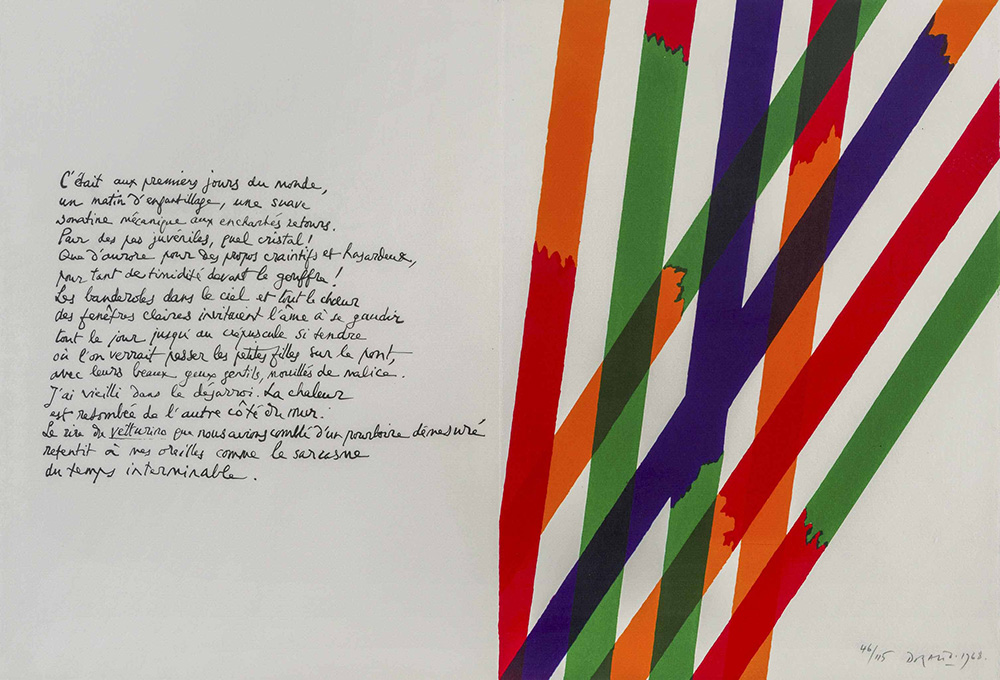 C'était aux premiers jours du monde,
un matin d'enfantillage, une suave
sonatine mécanique aux enchantés retours.
Pour des pas juvéniles, quel cristal!
Que d'aurore pour des propos craintifs et hasardeux,
pour tant de timidité devant le gouffre!
Les banderoles dans le ciel et tout le chœur
des fenêtres claires invitaient l'âme à se gaudir
tout le jour jusqu'au crépuscule si tendre
où l'on verrait passer les petites filles sur le pont
avec leurs beaux yeux gentils, mouillés de malice.
J'ai vieilli dans le désarroi. La chaleur
est retombée de l'autre côté du mur.
Le rire du vetturino que nous avions comblé d'un pourboire démesuré
retentit à nos oreilles comme le sarcasme
du temps interminable.
46/115 Dorazio 1968